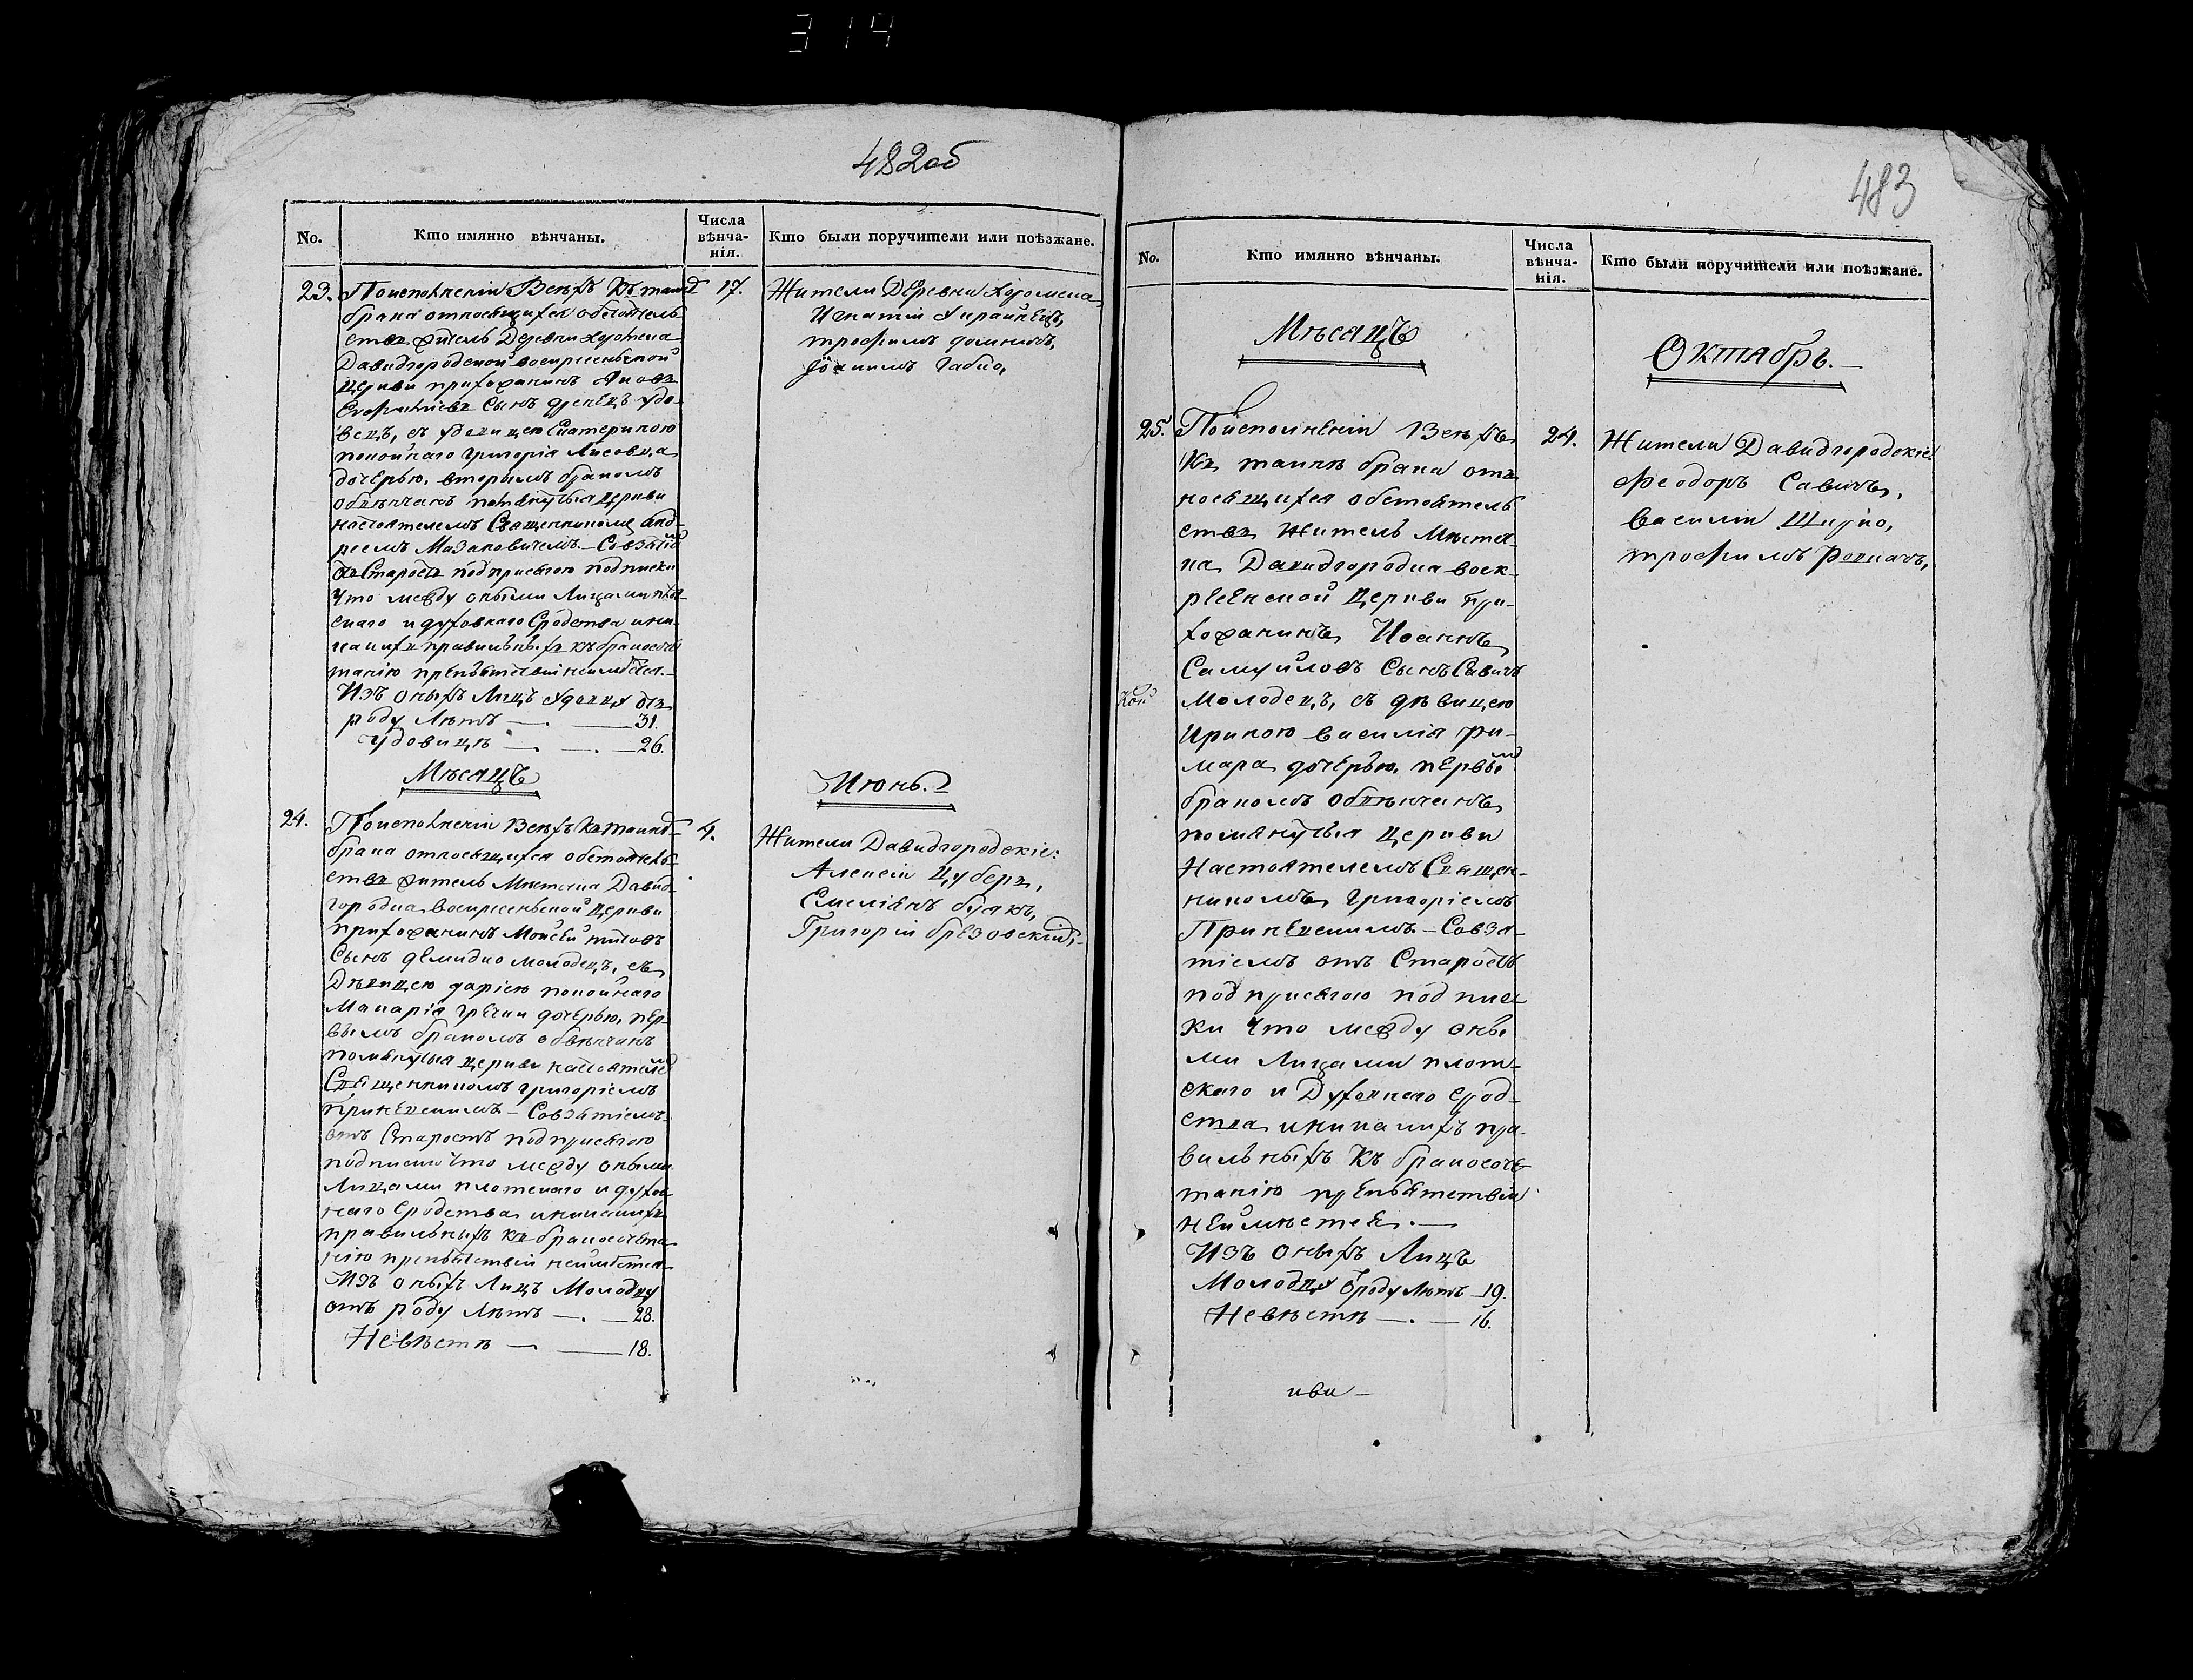 314
482об
No.
Кто имянно вѣнчаны.
Числа вѣнча-нія.
Кто были поручители или поѣзжане.
23. По исполненіи всѣхъ къ таинѣ
брака относящихся обстоятель
ствъ житель Деревни Хоромска
Давидгородской воскресенъской
церкви прихожанинъ
сынъ
вецъ, съ удовицею Екатериною
покойнаго Григорія Лисовца
дочерью, вторымъ бракомъ
обвѣнчанъ помянутыя церкви
настоятелемъ Священникомъ Анд-
реемъ Мазановичемъ. – Со взятіемъ
Старостъ подъ присягою подписки
что между оными Лицами плот-
скаго и духовнаго Сродства и ни-
какихъ правильныхъ къ браносоче
танію препятствій неимѣется. –
Изъ оныхъ Лицъ удовцу отъ
роду Лѣтъ — . — 31.
удовицѣ — . — 26.
17.
Жители Деревни Хоромска
Игнатій
трофимъ
Даниилъ
Мѣсяцъ
Июнь.
24. По исполненіи всѣхъ къ таинѣ
брака относящихся обстоятель
ствъ житель Мѣстечка Давид
городка воскресенъской церкви
прихожанинъ Моисей титовъ
сынъ демидко молодецъ, съ
Дѣвицею дарією покойнаго
Макарія Гречки дочерью, пер-
вымъ бракомъ обвѣнчанъ
помянутыя церкви настоятелемъ
Священникомъ григоріемъ
– Со взятіемъ
отъ Старостъ подъ присягою
подписки что между оными
Лицами плотскаго и духов
наго Сродства и никакихъ
правильныхъ къ браносочета
нію препятствій неимѣется
Изъ оныхъ Лицъ Молодцу
отъ роду Лѣтъ — . — 28.
Невѣстѣ — — 18.
4.
Жители Давидгородскіе:
Алексій Цуберъ,
Емеліянъ буякъ,
Григорій брезовский,
483
No.
Кто имянно вѣнчаны.
Числа вѣнча-нія.
Кто были поручители или поѣзжане.
Мѣсяцъ
Октябрь. –
25. По исполненіи всѣхъ
къ таинѣ брака отъ
носящихся обстоятель
ствъ житель Мѣстеч
ка Давидгородка воск-
ресенской церкви при-
хожанинъ Иоаннъ
Самуйловъ Сынъ Савичъ
Молодецъ, съ дѣвицею
Ириною василія
дочерью, первымъ
бракомъ обвѣнчанъ
помянутыя церкви
Настоятелемъ Священ-
никомъ григоріемъ
– Со взя-
тіемъ отъ Старостъ
подъ присягою подпис
ки что между оны
ми Лицами плот-
скаго и Духовнаго срод-
ства и никакихъ пра-
вильныхъ къ браносоче-
танію препятствій
неимѣется. —
Изъ оныхъ Лицъ
Молодцу отроду Лѣтъ – 19.
Невѣстѣ — . — 16.
24.
Жители Давидгородскіе
Феодоръ Савичъ,
василій Щирко,
трофимъ